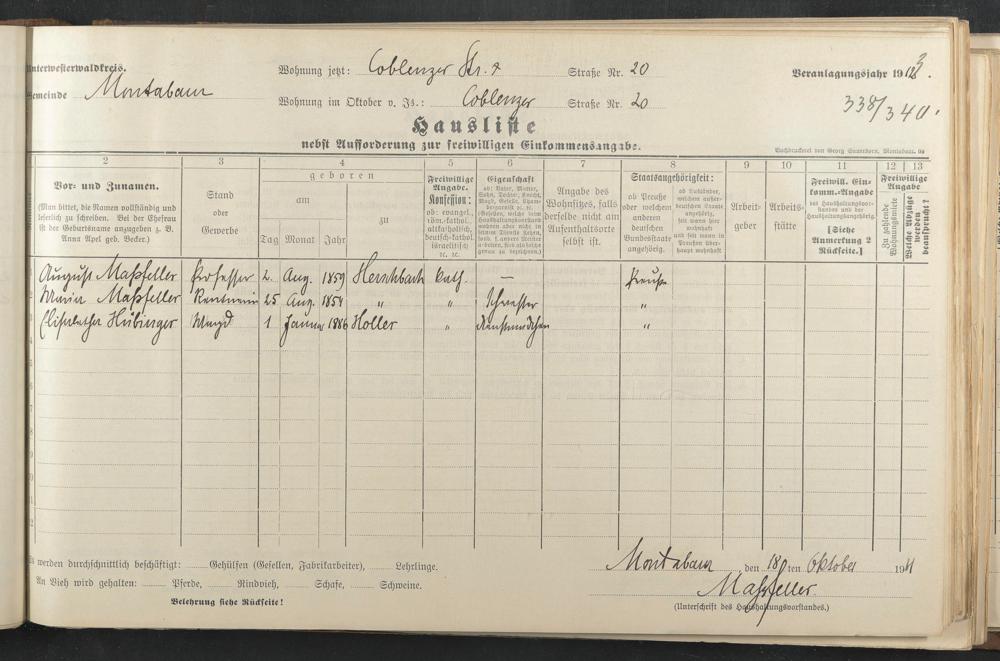 Unterwesterwaldkreis.
Gemeinde Montabaur
Wohnung jetzt: Coblenzer Str. Straße Nr. 20
Wohnung im Oktober v. Js.: Coblenzer Straße Nr. 20
Veranlagungsjahr 191
338/340.
Hausliste
nebst Aufforderung zur freiwilligen Einkommensangabe.
Buchdruckerei von Georg Sauerborn, Montabaur.
2 3 4 5 6 7 8 9 10 11 12 13
Vor- und Zunamen.
(Man bittet, die Namen vollständig und
leserlich zu schreiben. Bei der Ehefrau
ist der Geburtsname anzugeben z. B.
Anna Apel geb. Becker.)
Stand
oder
Gewerbe
geboren
am
Tag Monat Jahr
zu
Freiwillige
Angabe.
Konfession:
ob: evangel.,
röm.-kathol.,
altkatholisch,
deutsch-kathol.
israelitisch
ec. ec.
Eigenschaft
ob: Vater, Mutter,
Sohn, Tochter, Knecht,
Magd, Geselle,
Angabe des
Wohnsitzes, falls
derselbe nicht am
Aufenthaltsorte
selbst ist.
Staatsangehörigkeit:
ob Preuße
oder welchem
anderen
deutschen
Bundesstaate
angehörig.
ob Ausländer,
welchem außer-
deutschen Staate
angehörig,
seit wann hier
wohnhaft und
seit wann in
Preußen über-
haupt wohnhaft
Arbeit-
geber
Arbeits-
stätte
Freiwill. Ein-
komm.-Angabe
des Haushaltungsvor-
standes und der
Haushaltungsangehörig.
[Siehe
Anmerkung 2
Rückseite.]
Freiwillige
Angabe
Zu zahlende
Wohnungsmiete
Welche Abzüge
werden
beansprucht?
August Maßfeller Professor 2. Aug. 1859 Herschbach kath. — Preuße
Maria Maßfeller Rentnerin 25 Aug. 1854 " " Schwester "
Elisabetha Hübinger Magd 1 Januar 1886 Holler " Dienstmädchen "
Es werden durchschnittlich beschäftigt: Gehülfen (Gesellen, Fabrikarbeiter), Lehrlinge.
An Vieh wird gehalten: Pferde, Rindvieh, Schafe, Schweine.
Belehrung siehe Rückseite!
Montabaur, den 18ten Oktober 1911
Maßfeller
(Unterschrift des Haushaltungsvorstandes.)